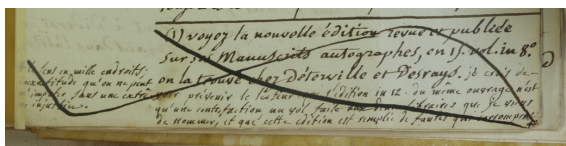 (1) voyez la nouvelle édition revue et publiée
sur ses Manuscrits autographes, en 15. vol. in 8.º
on la trouve chez Déterville et Desrays. je crois de-
voir prévenir le lecteur que l'édition in 12. du même ouvrage n'est
qu'une contrefaction un vol faite aux deux libraires que je viens
de nommer, et que cette édition est remplie de fautes qui corrompent
sens en mille endroits:
exactitude qu'on ne peut
imputer sans une extrê
injustice.